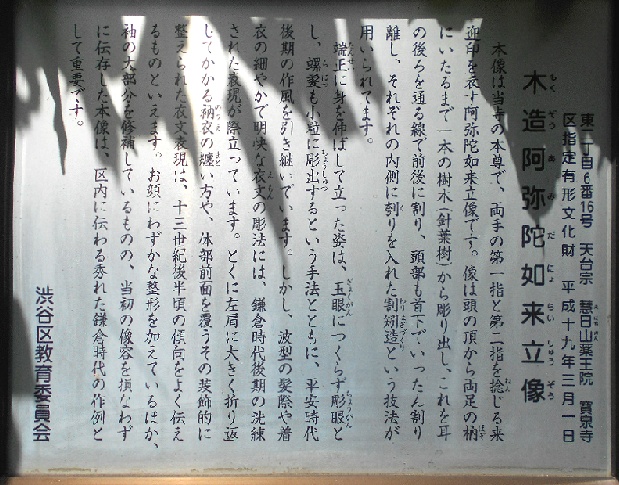 東二丁目6番16号 天台宗 慧日山薬王院 寶泉寺
区指定有形文化財 平成十九年三月一日
木造阿弥陀如来立像
もくぞうあみだにょらいりゅうぞう
本像は当寺の本尊で、両手の第一指と第二指を捻じる来
迎印を表す阿弥陀如来立像です。像は頭の頂から両足の枘
にいたるまで一本の樹木(針葉樹)から彫り出し、これを耳
の後ろを通る線で前後に割り、頭部も首下でいったん割り
離し、それぞれの内側に刳りを入れた割矧造という技法が
用いられてます。
端正に身を伸ばして立った姿は、玉眼につくらず彫眼と
し、螺髪も小粒に彫出するという手法とともに、平安時代
後期の作風を引き継いでいます。しかし、波型の髪際や着
衣の細やかで明快な衣文の彫法には、鎌倉時代後期の洗練
された表現が際立っています。とくに左肩に大きく折り返
じてかかる衲衣の纏い方や、体部前面を覆うその装飾的に
整えられた衣文表現は、十三世紀後半頃の傾向をよく伝え
るものといえます。お顔にわずかな整形を加えているほか、
袖の大部分を修補しているものの、当初の像容を損なわず
に伝存した本像は、区内に伝わる秀れた鎌倉時代の作例と
して重要です。
渋谷区教育委員会